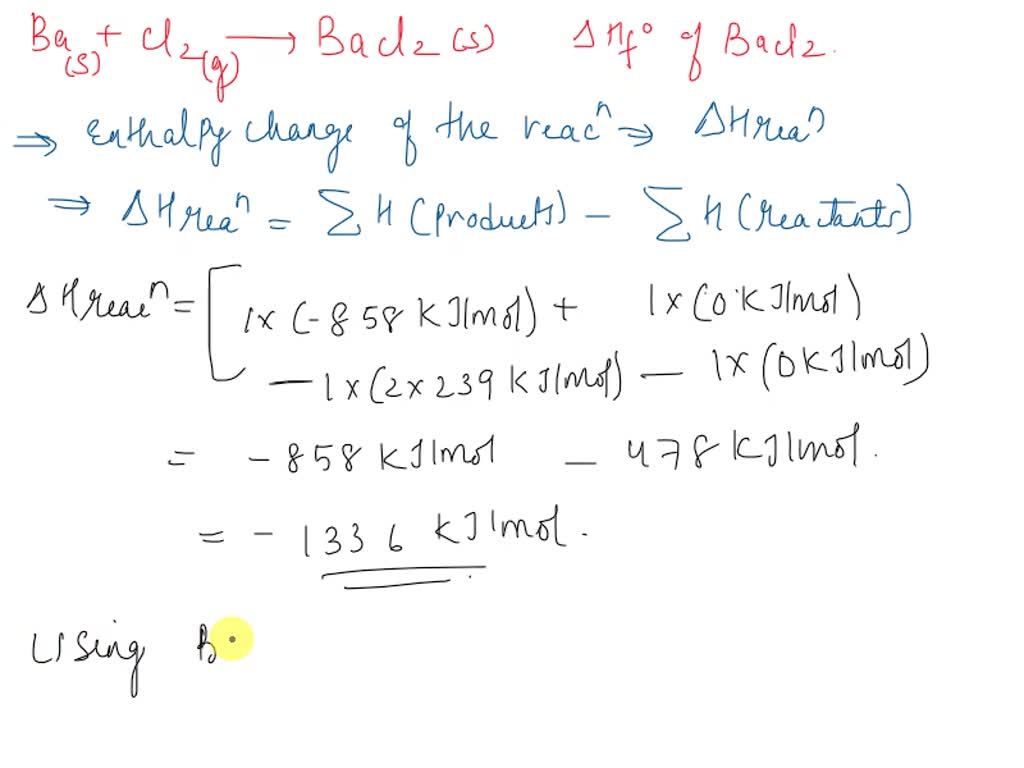 Ba(s) + Cl2(g) ⟶ BaCl2 (s) ΔHf° of BaCl2.
⇒ Enthalpy change of the reacⁿ ⇒ ΔHreaⁿ
⇒ ΔHreaⁿ = Σ H (products) − Σ H (reactants)
ΔHreacⁿ = [1 × (-858 KJ/mol) + 1 × (0 KJ/mol)
− 1 × (2 × 239 KJ/mol) − 1 × (0 KJ/mol)
= - 858 KJ/mol − 478 KJ/mol.
= - 1336 KJ/mol.
Using B